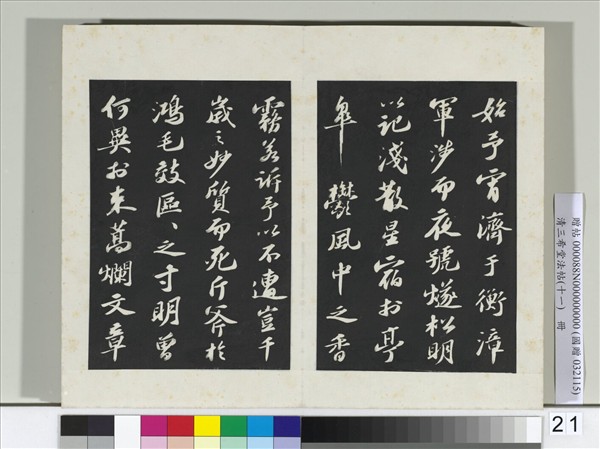 始予宵濟于衡漳
軍涉而夜號燧松明
以記淺散星宿於亭
皐鬱風中之香
霧若訴予以不遭豈千
歲之妙質而死斤斧於
鴻毛效區〻之寸明曾
何異於束蒿爛文章
贈帖 000088N000000000 (國贈 032115)
清三希堂法帖(十一) 冊
21